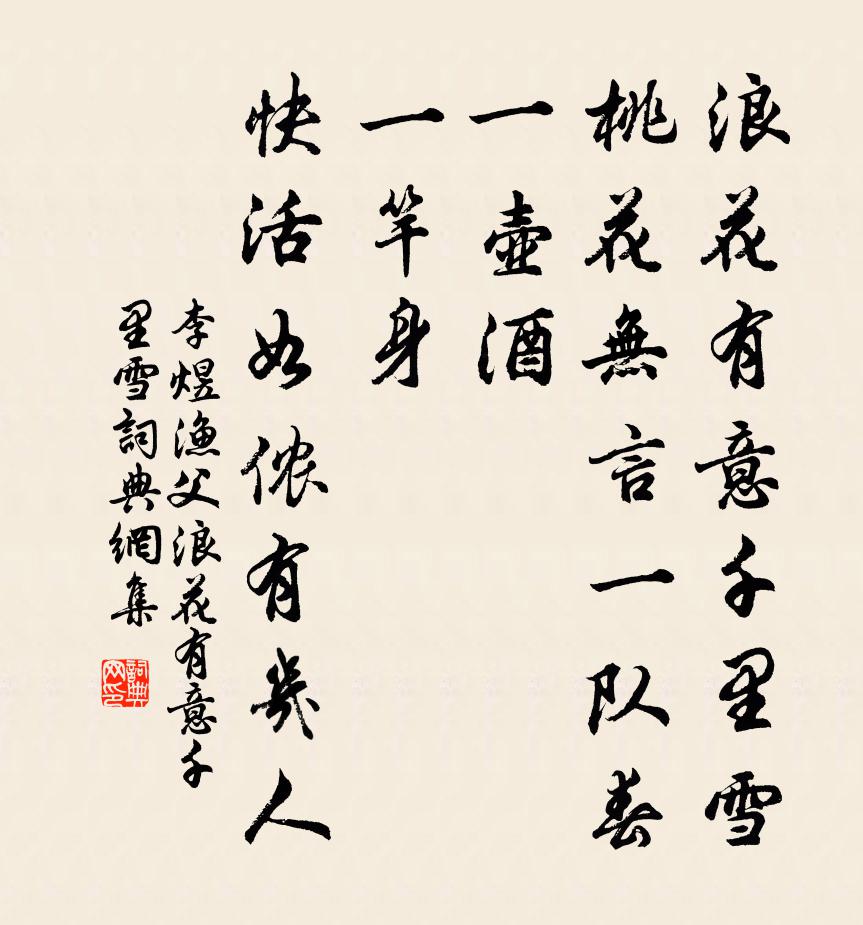 浪花有意千里雪
桃花無言一队春
一壺酒
一竿身
快活如侬有幾人
李煜渔父浪花有意千
里雪詞典網集
詞典网印